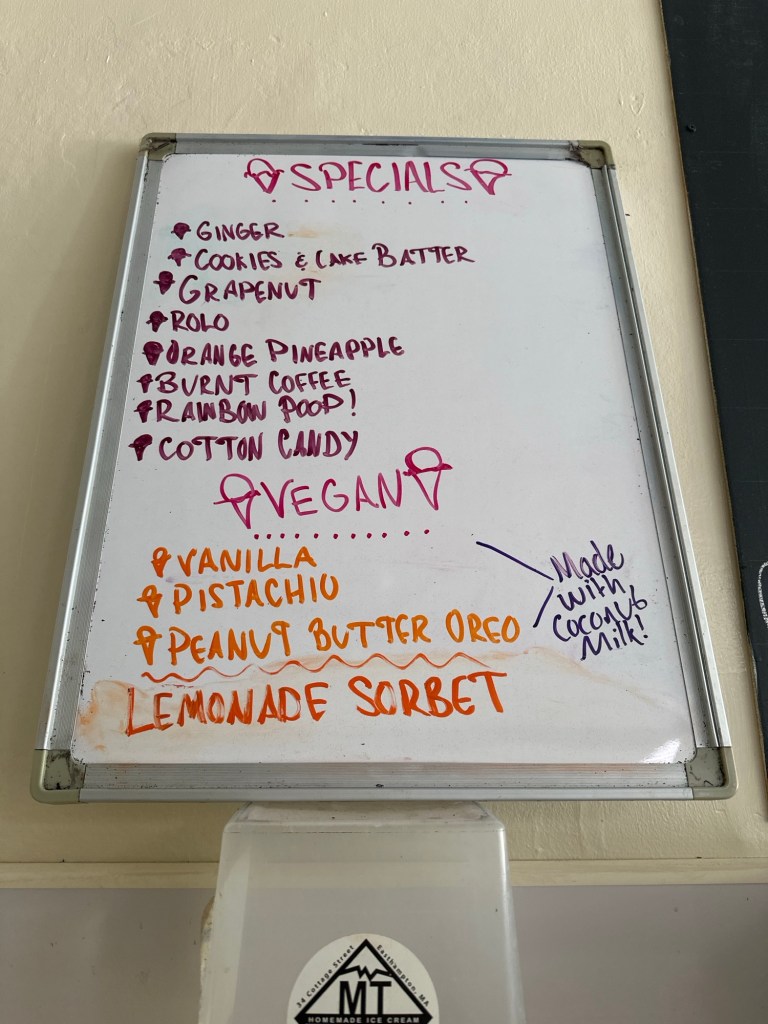 SPECIALS
GINGER
COOKIES & CAKE BATTER
GRAPENUT
ROLO
ORANGE PINEAPPLE
BURNT COFFEE
RAINBOW POOP!
COTTON CANDY
VEGAN
VANILLA
PISTACHIO
PEANUT BUTTER OREO
Made
with
Coconut
Milk!
LEMONADE SORBET
34 Cottage Street Easthampton, MA
MT
HOMEMADE ICE CREAM